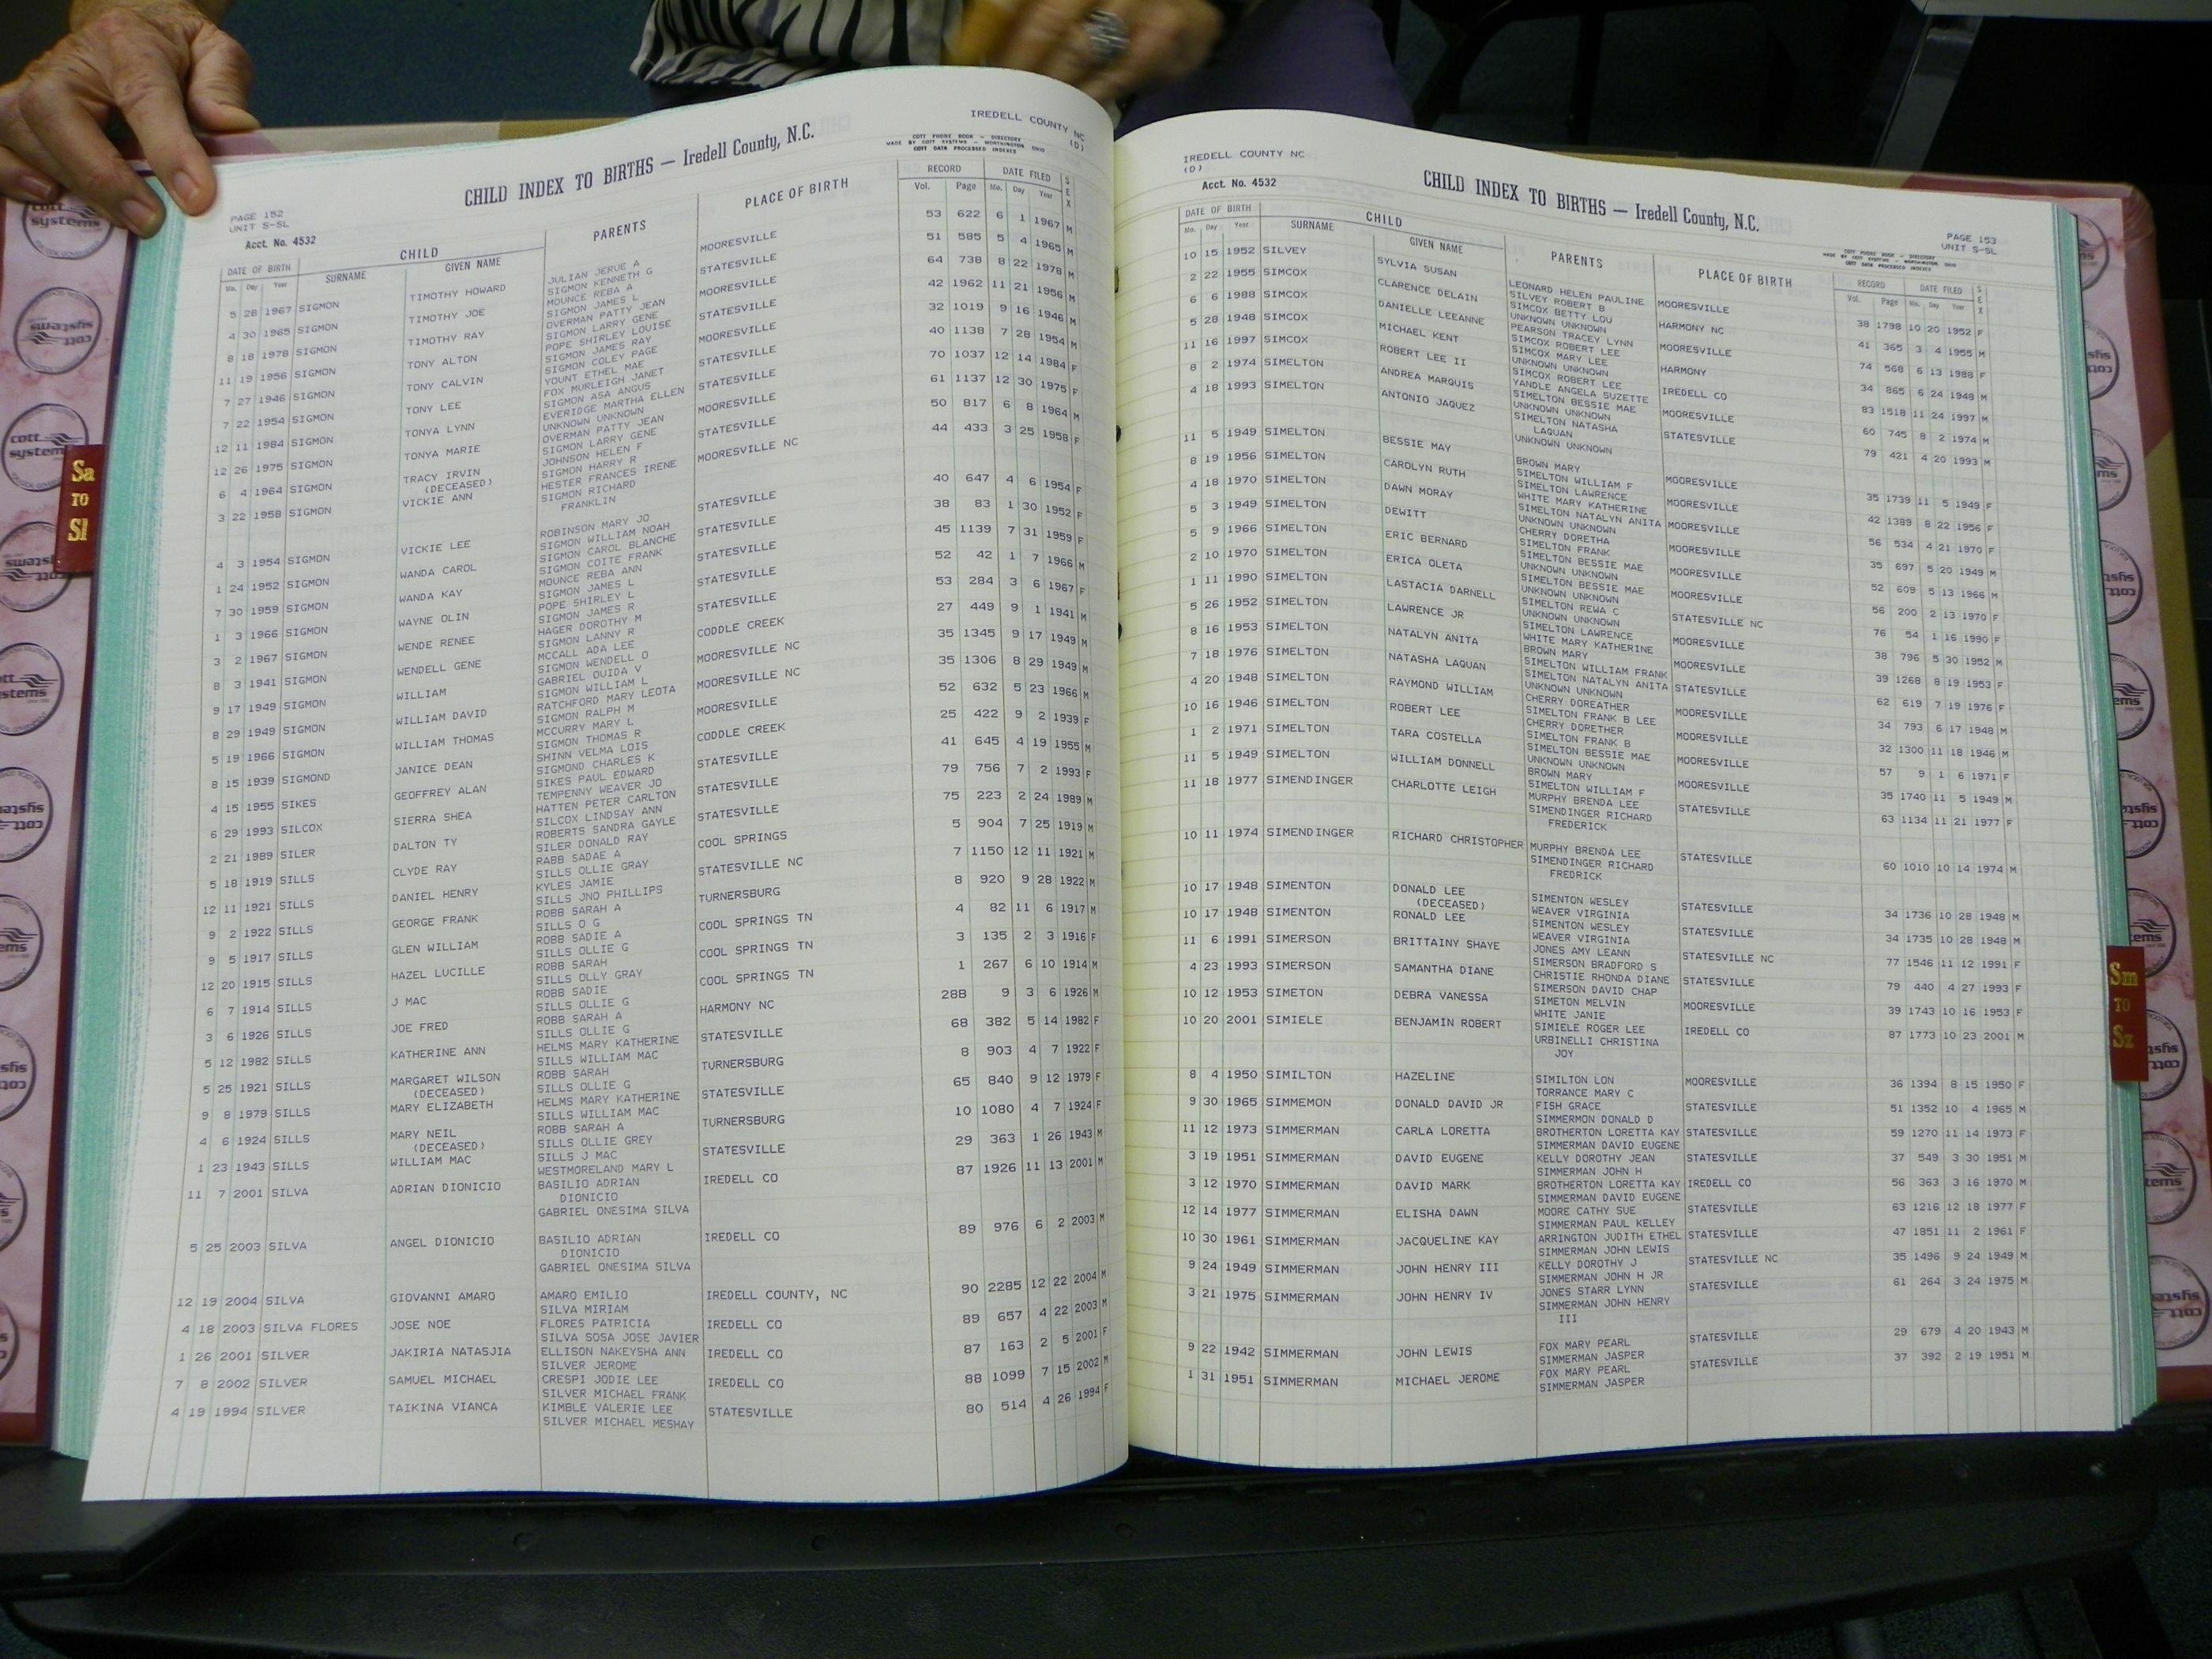 IREDELL COUNTY NC
(D)
CHILD INDEX TO BIRTHS — Iredell County, N.C.
COTT PHONE BOOK — DIRECTORY
MADE BY COTT SYSTEMS — WORTHINGTON OHIO
COTT DATA PROCESSED INDEXES
PAGE 152
UNIT S-SL
Acct. No. 4532
DATE OF BIRTH CHILD PARENTS PLACE OF BIRTH RECORD DATE FILED SEX
Mo. Day Year SURNAME GIVEN NAME Vol. Page Mo. Day Year
5 28 1967 SIGMON TIMOTHY HOWARD JULIAN JERUE A MOORESVILLE 53 622 6 1 1967 M
SIGMON KENNETH G
4 30 1965 SIGMON TIMOTHY JOE MOUNCE REBA A STATESVILLE 51 585 5 4 1965 M
SIGMON JAMES L
8 18 1978 SIGMON TIMOTHY RAY OVERMAN PATTY JEAN MOORESVILLE 64 738 8 22 1978 M
SIGMON LARRY GENE
11 19 1956 SIGMON TONY ALTON POPE SHIRLEY LOUISE STATESVILLE 42 1962 11 21 1956 M
SIGMON JAMES RAY
7 27 1946 SIGMON TONY CALVIN SIGMON COLEY PAGE MOORESVILLE 32 1019 9 16 1946 M
YOUNT ETHEL MAE
7 22 1954 SIGMON TONY LEE FOX MURLEIGH JANET STATESVILLE 40 1138 7 28 1954 M
SIGMON ASA ANGUS
12 11 1984 SIGMON TONYA LYNN EVERIDGE MARTHA ELLEN STATESVILLE 70 1037 12 14 1984 F
UNKNOWN UNKNOWN
12 26 1975 SIGMON TONYA MARIE OVERMAN PATTY JEAN MOORESVILLE 61 1137 12 30 1975 F
SIGMON LARRY GENE
6 4 1964 SIGMON TRACY IRVIN JOHNSON HELEN F STATESVILLE 50 817 6 8 1964 M
(DECEASED) SIGMON HARRY R
3 22 1958 SIGMON VICKIE ANN HESTER FRANCES IRENE MOORESVILLE NC 44 433 3 25 1958 F
SIGMON RICHARD
FRANKLIN
4 3 1954 SIGMON VICKIE LEE ROBINSON MARY JO STATESVILLE 40 647 4 6 1954 F
SIGMON WILLIAM NOAH
1 24 1952 SIGMON WANDA CAROL SIGMON CAROL BLANCHE STATESVILLE 38 83 1 30 1952 F
SIGMON COITE FRANK
7 30 1959 SIGMON WANDA KAY MOUNCE REBA ANN STATESVILLE 45 1139 7 31 1959 F
SIGMON JAMES L
1 3 1966 SIGMON WAYNE OLIN POPE SHIRLEY L STATESVILLE 52 42 1 7 1966 M
SIGMON JAMES R
3 2 1967 SIGMON WENDE RENEE HAGER DOROTHY M STATESVILLE 53 284 3 6 1967 F
SIGMON LANNY R
8 3 1941 SIGMON WENDELL GENE MCCALL ADA LEE CODDLE CREEK 27 449 9 1 1941 M
SIGMON WENDELL O
9 17 1949 SIGMON WILLIAM GABRIEL OUIDA V MOORESVILLE NC 35 1345 9 17 1949 M
SIGMON WILLIAM L
8 29 1949 SIGMON WILLIAM DAVID RATCHFORD MARY LEOTA MOORESVILLE NC 35 1306 8 29 1949 M
SIGMON RALPH M
5 19 1966 SIGMON WILLIAM THOMAS MCCURRY MARY L MOORESVILLE 52 632 5 23 1966 M
SIGMON THOMAS R
8 15 1939 SIGMOND JANICE DEAN SHINN VELMA LOIS CODDLE CREEK 25 422 9 2 1939 F
SIGMOND CHARLES K
4 15 1955 SIKES GEOFFREY ALAN SIKES PAUL EDWARD STATESVILLE 41 645 4 19 1955 M
TEMPENNY WEAVER JO
6 29 1993 SILCOX SIERRA SHEA HATTEN PETER CARLTON STATESVILLE 79 756 7 2 1993 F
SILCOX LINDSAY ANN
2 21 1989 SILER DALTON TY ROBERTS SANDRA GAYLE STATESVILLE 75 223 2 24 1989 M
SILER DONALD RAY
5 18 1919 SILLS CLYDE RAY RABB SADAE A COOL SPRINGS 5 904 7 25 1919 M
SILLS OLLIE GRAY
12 11 1921 SILLS DANIEL HENRY KYLES JAMIE STATESVILLE NC 7 1150 12 11 1921 M
SILLS JNO PHILLIPS
9 2 1922 SILLS GEORGE FRANK ROBB SARAH A TURNERSBURG 8 920 9 28 1922 M
SILLS O G
9 5 1917 SILLS GLEN WILLIAM ROBB SADIE A COOL SPRINGS TN 4 82 11 6 1917 M
SILLS OLLIE G
12 20 1915 SILLS HAZEL LUCILLE ROBB SARAH COOL SPRINGS TN 3 135 2 3 1916 F
SILLS OLLY GRAY
6 7 1914 SILLS J MAC ROBB SADIE COOL SPRINGS TN 1 267 6 10 1914 M
SILLS OLLIE G
3 6 1926 SILLS JOE FRED ROBB SARAH A HARMONY NC 28B 9 3 6 1926 M
SILLS OLLIE G
5 12 1982 SILLS KATHERINE ANN HELMS MARY KATHERINE STATESVILLE 68 382 5 14 1982 F
SILLS WILLIAM MAC
5 25 1921 SILLS MARGARET WILSON ROBB SARAH TURNERSBURG 8 903 4 7 1922 F
(DECEASED) SILLS OLLIE G
9 8 1979 SILLS MARY ELIZABETH HELMS MARY KATHERINE STATESVILLE 65 840 9 12 1979 F
SILLS WILLIAM MAC
4 6 1924 SILLS MARY NEIL ROBB SARAH A TURNERSBURG 10 1080 4 7 1924 F
(DECEASED) SILLS OLLIE GREY
1 23 1943 SILLS WILLIAM MAC SILLS J MAC STATESVILLE 29 363 1 26 1943 M
WESTMORELAND MARY L
11 7 2001 SILVA ADRIAN DIONICIO BASILIO ADRIAN IREDELL CO 87 1926 11 13 2001 M
DIONICIO
GABRIEL ONESIMA SILVA
5 25 2003 SILVA ANGEL DIONICIO BASILIO ADRIAN IREDELL CO 89 976 6 2 2003 M
DIONICIO
GABRIEL ONESIMA SILVA
12 19 2004 SILVA GIOVANNI AMARO AMARO EMILIO IREDELL COUNTY, NC 90 2285 12 22 2004 M
SILVA MIRIAM
4 18 2003 SILVA FLORES JOSE NOE FLORES PATRICIA IREDELL CO 89 657 4 22 2003 M
SILVA SOSA JOSE JAVIER
1 26 2001 SILVER JAKIRIA NATASJIA ELLISON NAKEYSHA ANN IREDELL CO 87 163 2 5 2001 F
SILVER JEROME
7 8 2002 SILVER SAMUEL MICHAEL CRESPI JODIE LEE IREDELL CO 88 1099 7 15 2002 M
SILVER MICHAEL FRANK
4 19 1994 SILVER TAIKINA VIANCA KIMBLE VALERIE LEE STATESVILLE 80 514 4 26 1994 F
SILVER MICHAEL MESHAY
Sa
TO
Sl
IREDELL COUNTY NC
(D)
Acct. No. 4532
CHILD INDEX TO BIRTHS — Iredell County, N.C.
PAGE 153
UNIT S-SL
COTT PHONE BOOK — DIRECTORY
MADE BY COTT SYSTEMS — WORTHINGTON OHIO
COTT DATA PROCESSED INDEXES
DATE OF BIRTH CHILD PARENTS PLACE OF BIRTH RECORD DATE FILED SEX
Mo. Day Year SURNAME GIVEN NAME Vol. Page Mo. Day Year
10 15 1952 SILVEY SYLVIA SUSAN LEONARD HELEN PAULINE MOORESVILLE 38 1798 10 20 1952 F
SILVEY ROBERT B
2 22 1955 SIMCOX CLARENCE DELAIN SIMCOX BETTY LOU HARMONY NC 41 365 3 4 1955 M
UNKNOWN UNKNOWN
6 6 1988 SIMCOX DANIELLE LEEANNE PEARSON TRACEY LYNN MOORESVILLE 74 568 6 13 1988 F
SIMCOX ROBERT LEE
5 28 1948 SIMCOX MICHAEL KENT SIMCOX MARY LEE HARMONY 34 865 6 24 1948 M
UNKNOWN UNKNOWN
11 16 1997 SIMCOX ROBERT LEE II SIMCOX ROBERT LEE IREDELL CO 83 1518 11 24 1997 M
YANDLE ANGELA SUZETTE
8 2 1974 SIMELTON ANDREA MARQUIS SIMELTON BESSIE MAE MOORESVILLE 60 745 8 2 1974 M
UNKNOWN UNKNOWN
4 18 1993 SIMELTON ANTONIO JAQUEZ SIMELTON NATASHA STATESVILLE 79 421 4 20 1993 M
LAQUAN
UNKNOWN UNKNOWN
11 5 1949 SIMELTON BESSIE MAY BROWN MARY MOORESVILLE 35 1739 11 5 1949 F
SIMELTON WILLIAM F
8 19 1956 SIMELTON CAROLYN RUTH SIMELTON LAWRENCE MOORESVILLE 42 1389 8 22 1956 F
WHITE MARY KATHERINE
4 18 1970 SIMELTON DAWN MORAY SIMELTON NATALYN ANITA MOORESVILLE 56 534 4 21 1970 F
UNKNOWN UNKNOWN
5 3 1949 SIMELTON DEWITT CHERRY DORETHA MOORESVILLE 35 697 5 20 1949 M
SIMELTON FRANK
5 9 1966 SIMELTON ERIC BERNARD SIMELTON BESSIE MAE MOORESVILLE 52 609 5 13 1966 M
UNKNOWN UNKNOWN
2 10 1970 SIMELTON ERICA OLETA SIMELTON BESSIE MAE STATESVILLE NC 56 200 2 13 1970 F
UNKNOWN UNKNOWN
1 11 1990 SIMELTON LASTACIA DARNELL SIMELTON REWA C MOORESVILLE 76 54 1 16 1990 F
UNKNOWN UNKNOWN
5 26 1952 SIMELTON LAWRENCE JR SIMELTON LAWRENCE MOORESVILLE 38 796 5 30 1952 M
WHITE MARY KATHERINE
8 16 1953 SIMELTON NATALYN ANITA BROWN MARY STATESVILLE 39 1268 8 19 1953 F
SIMELTON WILLIAM FRANK
7 18 1976 SIMELTON NATASHA LAQUAN SIMELTON NATALYN ANITA MOORESVILLE 62 619 7 19 1976 F
UNKNOWN UNKNOWN
4 20 1948 SIMELTON RAYMOND WILLIAM CHERRY DOREATHER MOORESVILLE 34 793 6 17 1948 M
SIMELTON FRANK B LEE
10 16 1946 SIMELTON ROBERT LEE CHERRY DORETHER MOORESVILLE 32 1300 11 18 1946 M
SIMELTON FRANK B
1 2 1971 SIMELTON TARA COSTELLA SIMELTON BESSIE MAE MOORESVILLE 57 9 1 6 1971 F
UNKNOWN UNKNOWN
11 5 1949 SIMELTON WILLIAM DONNELL BROWN MARY MOORESVILLE 35 1740 11 5 1949 M
SIMELTON WILLIAM F
11 18 1977 SIMENDINGER CHARLOTTE LEIGH MURPHY BRENDA LEE STATESVILLE 63 1134 11 21 1977 F
SIMENDINGER RICHARD
FREDERICK
10 11 1974 SIMENDINGER RICHARD CHRISTOPHER MURPHY BRENDA LEE STATESVILLE 60 1010 10 14 1974 M
SIMENDINGER RICHARD
FREDRICK
10 17 1948 SIMENTON DONALD LEE SIMENTON WESLEY STATESVILLE 34 1736 10 28 1948 M
(DECEASED) WEAVER VIRGINIA
10 17 1948 SIMENTON RONALD LEE SIMENTON WESLEY STATESVILLE 34 1735 10 28 1948 M
WEAVER VIRGINIA
11 6 1991 SIMERSON BRITTAINY SHAYE JONES AMY LEANN STATESVILLE NC 77 1546 11 12 1991 F
SIMERSON BRADFORD S
4 23 1993 SIMERSON SAMANTHA DIANE CHRISTIE RHONDA DIANE STATESVILLE 79 440 4 27 1993 F
SIMERSON DAVID CHAP
10 12 1953 SIMETON DEBRA VANESSA SIMETON MELVIN MOORESVILLE 39 1743 10 16 1953 F
WHITE JANIE
10 20 2001 SIMIELE BENJAMIN ROBERT SIMIELE ROGER LEE IREDELL CO 87 1773 10 23 2001 M
URBINELLI CHRISTINA
JOY
8 4 1950 SIMILTON HAZELINE SIMILTON LON MOORESVILLE 36 1394 8 15 1950 F
TORRANCE MARY C
9 30 1965 SIMMEMON DONALD DAVID JR FISH GRACE STATESVILLE 51 1352 10 4 1965 M
SIMMERMON DONALD D
11 12 1973 SIMMERMAN CARLA LORETTA BROTHERTON LORETTA KAY STATESVILLE 59 1270 11 14 1973 F
SIMMERMAN DAVID EUGENE
3 19 1951 SIMMERMAN DAVID EUGENE KELLY DOROTHY JEAN STATESVILLE 37 549 3 30 1951 M
SIMMERMAN JOHN H
3 12 1970 SIMMERMAN DAVID MARK BROTHERTON LORETTA KAY IREDELL CO 56 363 3 16 1970 M
SIMMERMAN DAVID EUGENE
12 14 1977 SIMMERMAN ELISHA DAWN MOORE CATHY SUE STATESVILLE 63 1216 12 18 1977 F
SIMMERMAN PAUL KELLEY
10 30 1961 SIMMERMAN JACQUELINE KAY ARRINGTON JUDITH ETHEL STATESVILLE 47 1851 11 2 1961 F
SIMMERMAN JOHN LEWIS
9 24 1949 SIMMERMAN JOHN HENRY III KELLY DOROTHY J STATESVILLE NC 35 1496 9 24 1949 M
SIMMERMAN JOHN H JR
3 21 1975 SIMMERMAN JOHN HENRY IV JONES STARR LYNN STATESVILLE 61 264 3 24 1975 M
SIMMERMAN JOHN HENRY
III
9 22 1942 SIMMERMAN JOHN LEWIS FOX MARY PEARL STATESVILLE 29 679 4 20 1943 M
SIMMERMAN JASPER
1 31 1951 SIMMERMAN MICHAEL JEROME FOX MARY PEARL STATESVILLE 37 392 2 19 1951 M
SIMMERMAN JASPER
Sm
TO
Sz
cott
systems